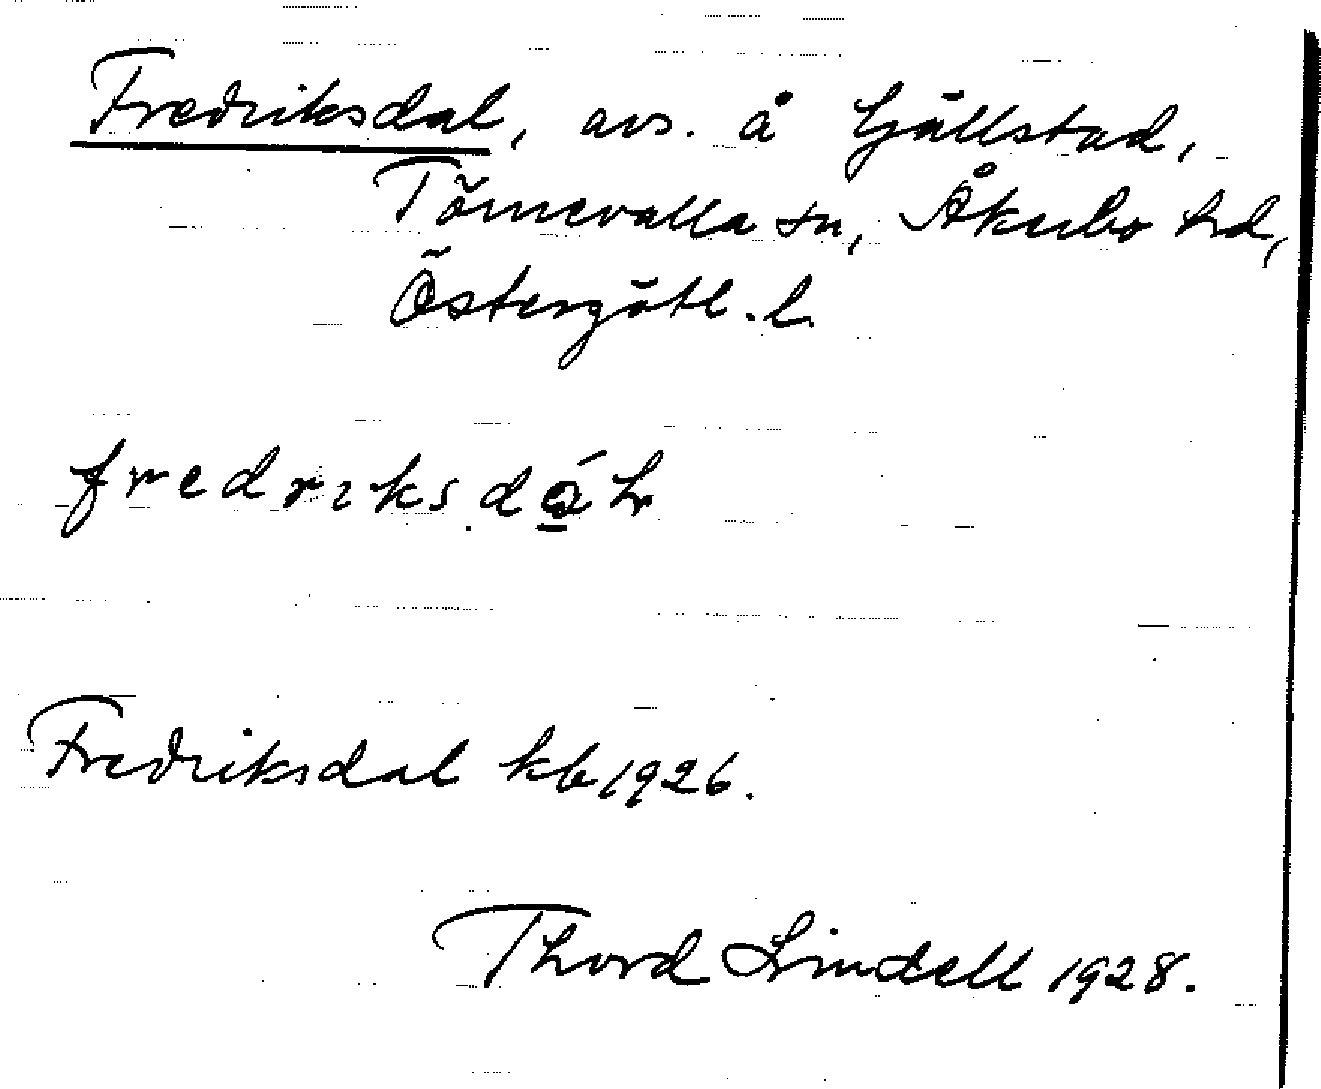 Fredriksdal, avs. å Gällstad,
Törnevalla sn, Åkerbo hd,
Östergötl. l.
fredriksdáł
Fredriksdal kb 1926.
Thord Lindell 1928.